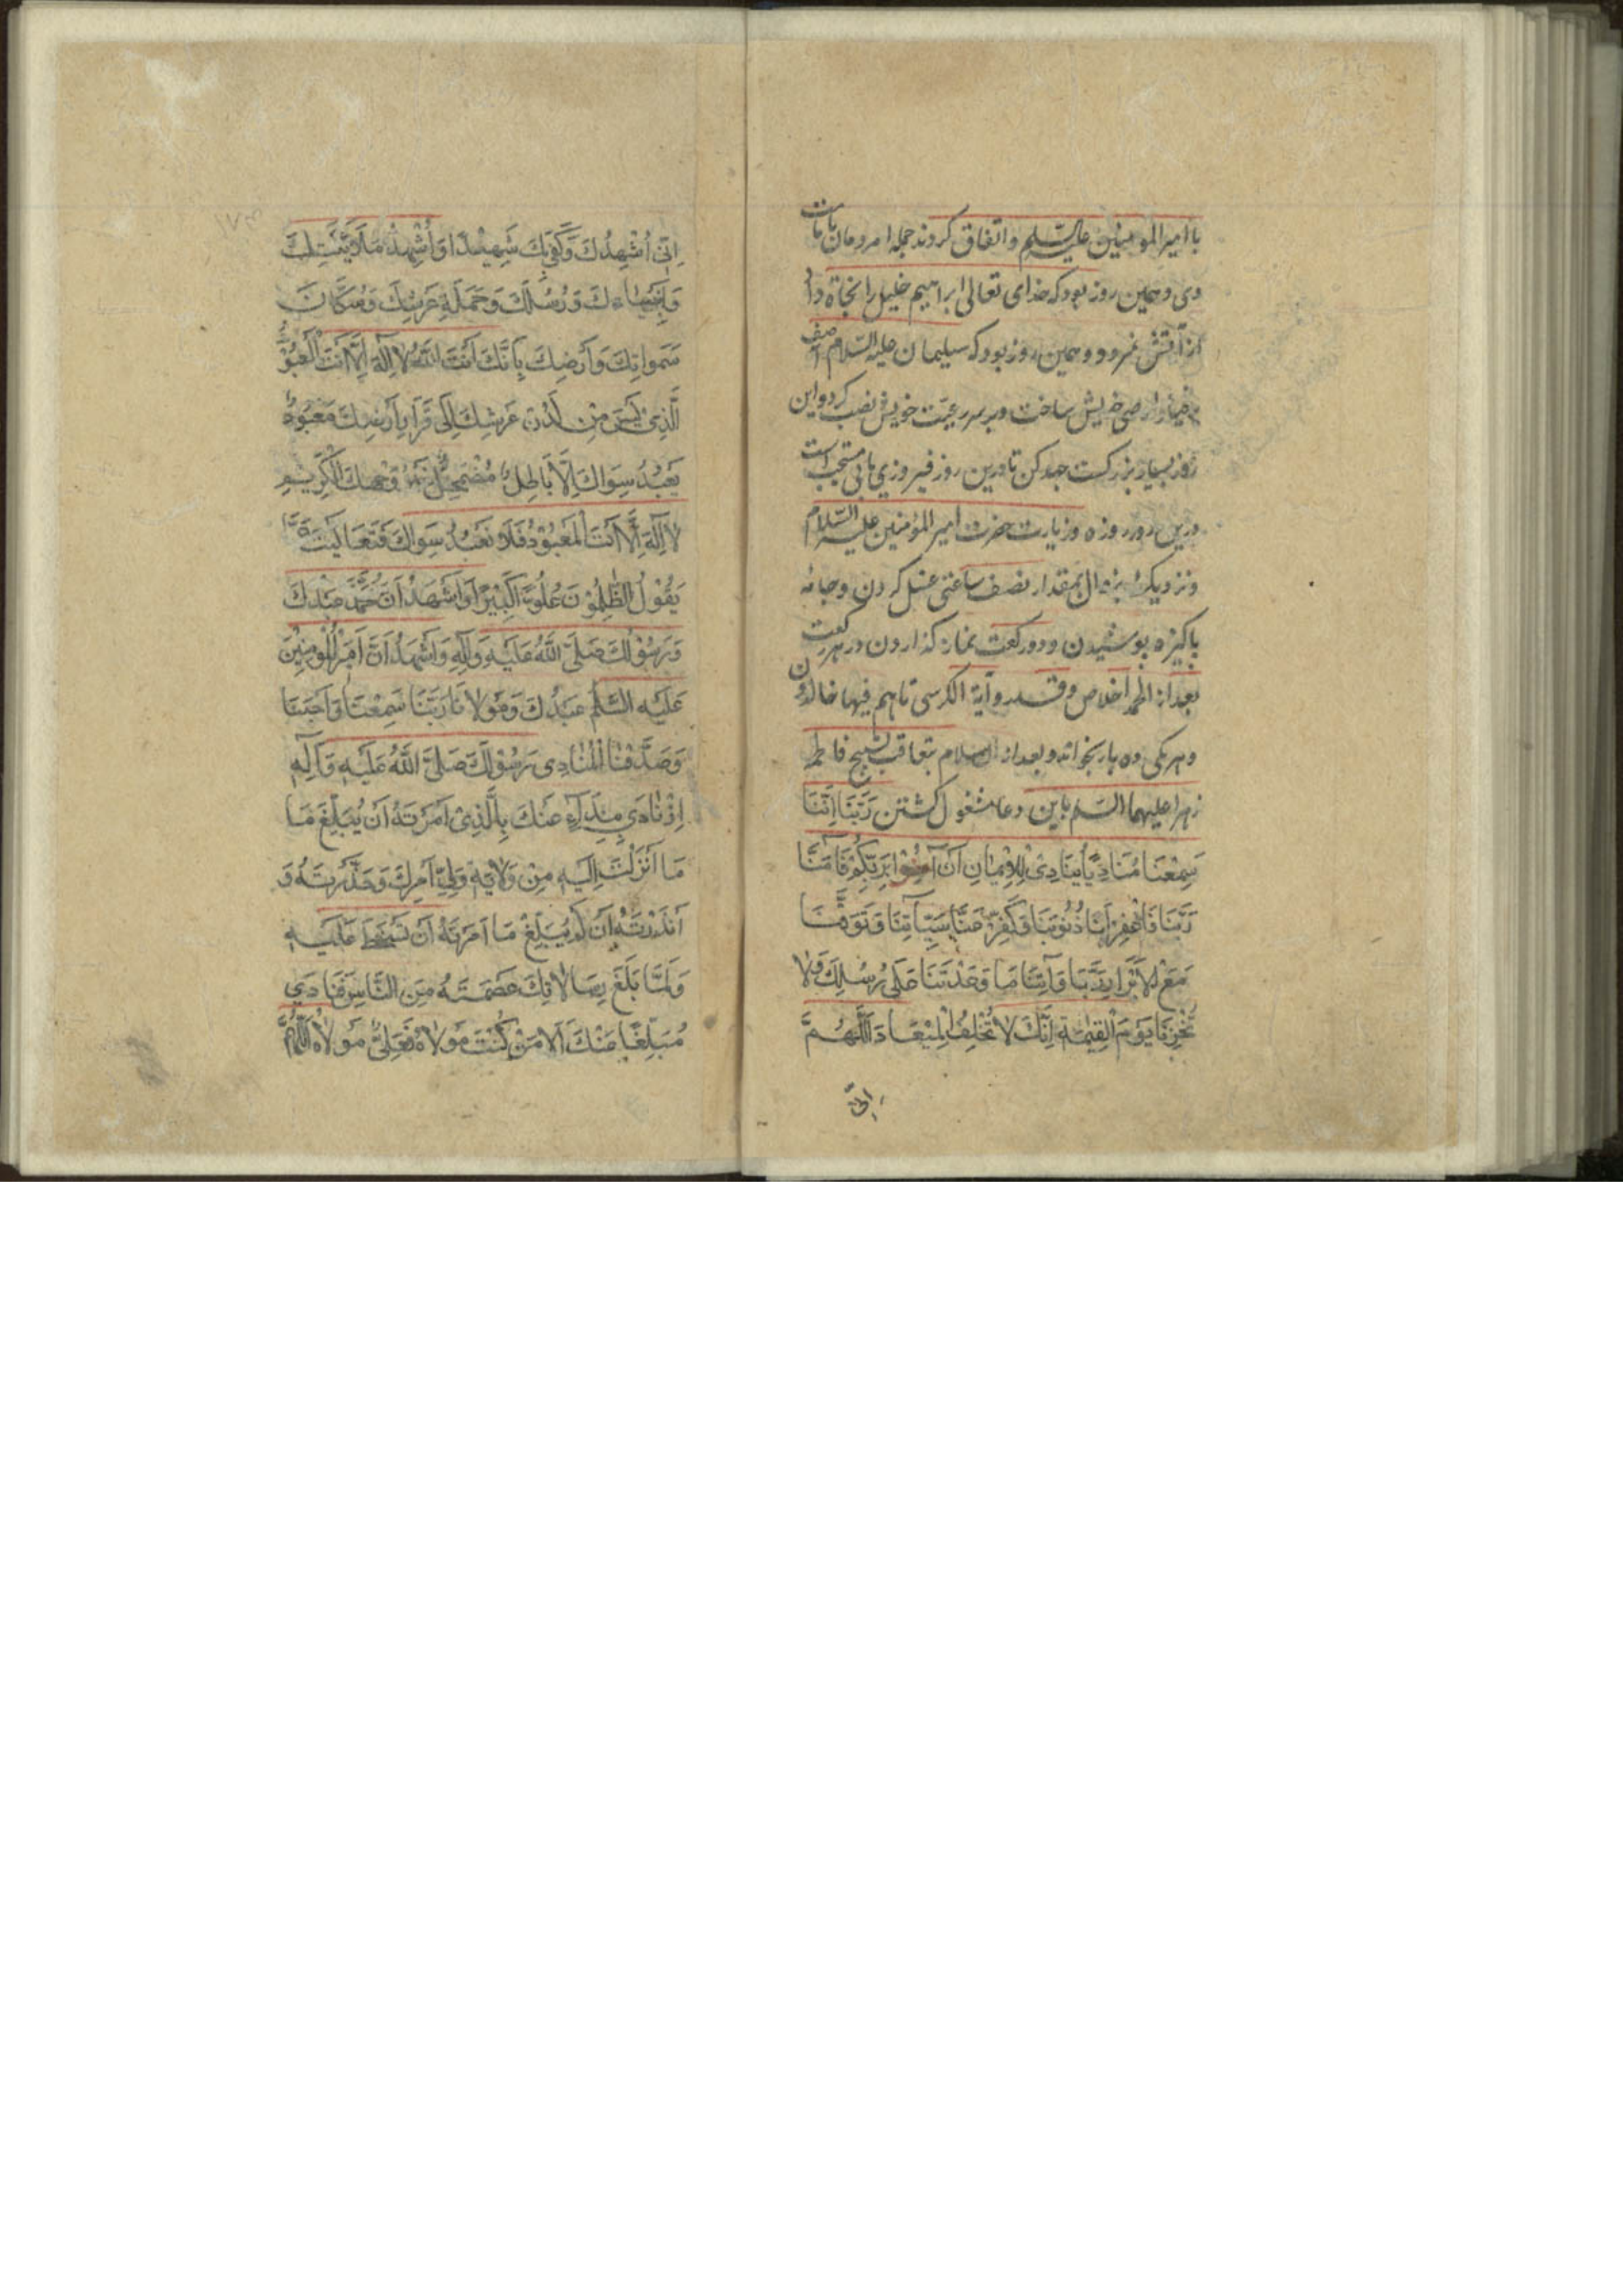 با امیر المومنین علیه السلم و اتفاق کردند جمله امردمان بامامت
وی و همین روز بود که خدای تعالی ابراهیم خلیل را نجاة داد
از آتش نمرود و همین روز بود که سلیمان علیه السلام آصف
برخیا را وصی خویش ساخت و بر سر رعیت خویش نصب کرد و این
روز بسیار بزرکست جهد کن تا درین روز فیروزی یابی مستحب است
درین روز روزه و زیارت حضرت امیر المؤمنین علیه السلام
و نزدیک بزوال بمقدار نصف ساعتی غسل کردن و جامه
پاکیزه پوشیدن و دو رکعت نماز کذاردن در هر رکعت
بعد از الحمد اخلاص و قدر و آیة الکرسی تا هم فیها خالدون
و هر یکی ده بار بخواند و بعد از السلام بتعاقب تسبیح فاطمه
زهرا علیهما السلم باین دعا مشغول کشتن رَبَّنَا اِنَّنَا
سَمِعْنَا مُنَادِیًا یُنَادِیْ لِلْاِیْمَانِ اَنْ آمِنُوْا بِرَبِّکُمْ فَآمَنَّا
رَبَّنَا فَاغْفِرْ لَنَا ذُنُوْبَنَا وَکَفِّرْ عَنَّا سَیِّآتِنَا وَتَوَفَّنَا
مَعَ الْاَبْرَارِ رَبَّنَا وَآتِنَا مَا وَعَدْتَنَا عَلٰی رُسُلِکَ وَلَا
تُخْزِنَا یَوْمَ الْقِیٰمَةِ اِنَّکَ لَا تُخْلِفُ الْمِیْعَادَ اَللّٰهُمَّ
اِنِّی
۱۷۳
اِنِّی اُشْهِدُکَ وَکَفٰی بِکَ شَهِیْدًا وَاُشْهِدُ مَلَائِکَتَکَ
وَاَنْبِیَاءَکَ وَرُسُلَکَ وَحَمَلَةَ عَرْشِکَ وَسُکَّانَ
سَمٰوَاتِکَ وَاَرْضِکَ بِاَنَّکَ اَنْتَ اللّٰهُ لَا اِلٰهَ اِلَّا اَنْتَ الْمَعْبُوْدُ
الَّذِیْ لَیْسَ مِنْ لَدُنْ عَرْشِکَ اِلٰی قَرَارِ اَرْضِکَ مَعْبُوْدٌ
یُعْبَدُ سِوَاکَ اِلَّا بَاطِلٌ مُضْمَحِلٌّ غَیْرُ وَجْهِکَ الْکَرِیْمِ
لَا اِلٰهَ اِلَّا اَنْتَ الْمَعْبُوْدُ فَلَا نَعْبُدُ سِوَاکَ فَتَعَالَیْتَ عَمَّا
یَقُوْلُ الظّٰلِمُوْنَ عُلُوًّا کَبِیْرًا وَاَشْهَدُ اَنَّ مُحَمَّدًا عَبْدُکَ
وَرَسُوْلُکَ صَلَّی اللّٰهُ عَلَیْهِ وَآلِهِ وَاَشْهَدُ اَنَّ اَمِیْرَ الْمُؤْمِنِیْنَ
عَلَیْهِ السَّلٰمُ عَبْدُکَ وَمَوْلَانَا رَبَّنَا سَمِعْنَا وَاَجَبْنَا
وَصَدَّقْنَا الْمُنَادِی رَسُوْلَکَ صَلَّی اللّٰهُ عَلَیْهِ وَآلِهِ
اِذْ نَادٰی بِنِدَآءٍ عَنْکَ بِالَّذِیْ اَمَرْتَهُ اَنْ یُبَلِّغَ مَا
مَا اَنْزَلْتَ اِلَیْهِ مِنْ وَلَایَةِ وَلِیِّ اَمْرِکَ وَحَذَّرْتَهُ وَ
اَنْذَرْتَهُ اَنْ لَمْ یُبَلِّغْ مَا اَمَرْتَهُ اَنْ تَسْخَطَ عَلَیْهِ
وَلَمَّا بَلَّغَ رِسَالَاتِکَ عَصَمْتَهُ مِنَ النَّاسِ فَنَادٰی
مُبَلِّغًا عَنْکَ اَلَا مَنْ کُنْتُ مَوْلَاهُ فَعَلِیٌّ مَوْلَاهُ اَللّٰهُمَّ